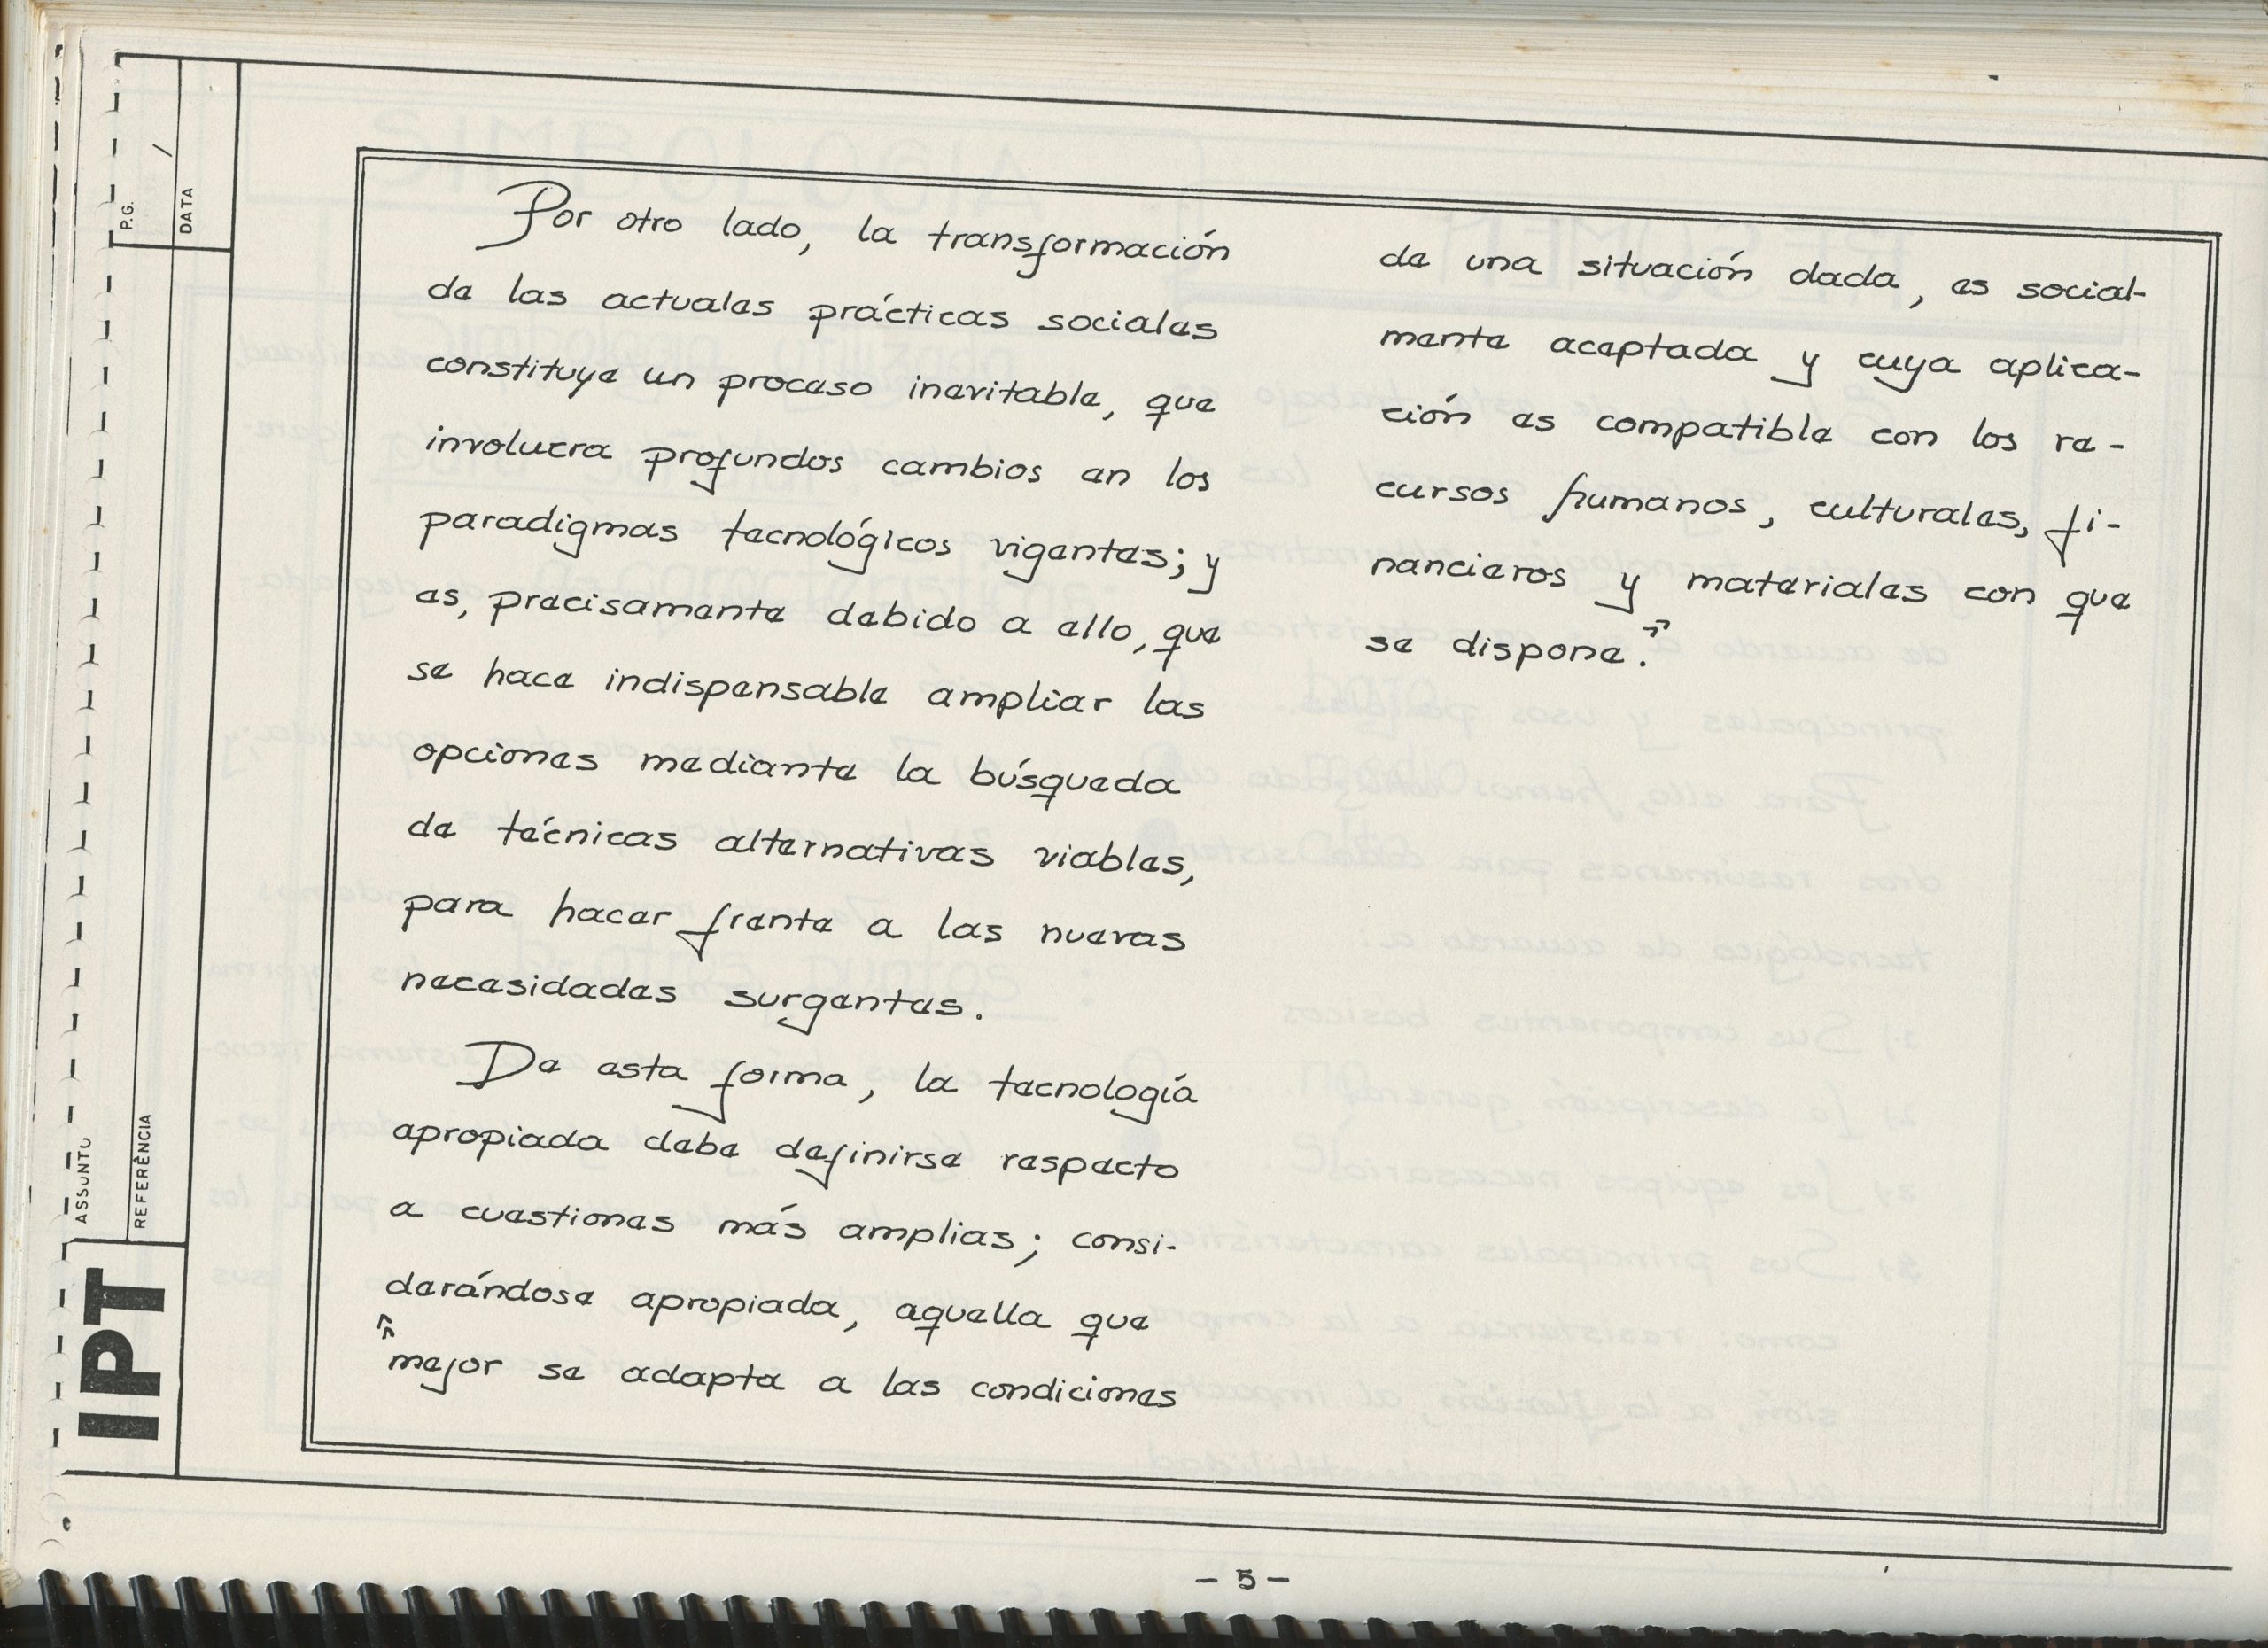 Por otro lado, la transformación
de las actuales prácticas sociales
constituye un proceso inevitable, que
involucra profundos cambios en los
paradigmas tecnológicos vigentes; y
es, precisamente debido a ello, que
se hace indispensable ampliar las
opciones mediante la búsqueda
de técnicas alternativas viables,
para hacer frente a las nuevas
necesidades surgentes.
De esta forma, la tecnología
apropiada debe definirse respecto
a cuestiones más amplias; consi-
derándose apropiada, aquella que
"mejor se adapta a las condiciones
de una situación dada, es social-
mente aceptada y cuya aplica-
ción es compatible con los re-
cursos humanos, culturales, fi-
nancieros y materiales con que
se dispone."
P.G.
/
DATA
ASSUNTO
REFERÊNCIA
IPT
- 5 -